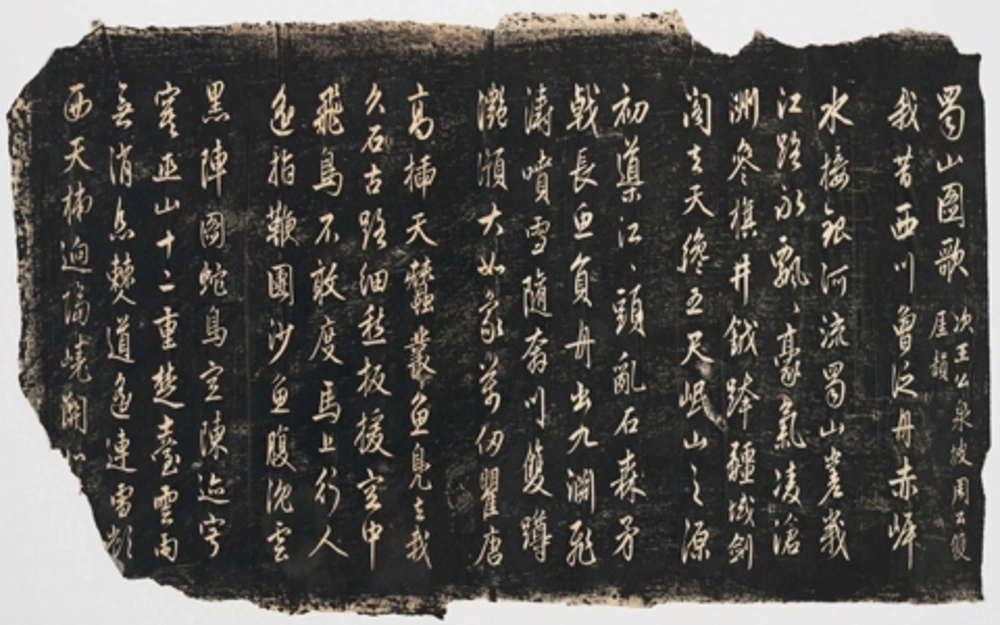 蜀山圖歌 次王公泉坡周公雙厓韻
我昔西川曾泛舟赤岸
水接銀河流蜀山嵳峩
江路永飄飄豪氣凌滄
洲參旗井鉞跨疆域劍
閣去天纔五尺岷山之源
初導江江頭亂石森矛
戟長魚負舟出九淵飛
濤噴雪隨奔川雙蹲
灧澦大如象萬仞瞿唐
高插天蠶叢魚鳧去我
久石古路細愁扳援空中
飛鳥不敢度馬上行人
遙指鞭團沙魚腹沉雲
黑陣圖蛇鳥空陳迹
寒巫山十二重楚臺雲雨
無消息僰道遙連雪
西天梯迥隔嶢關